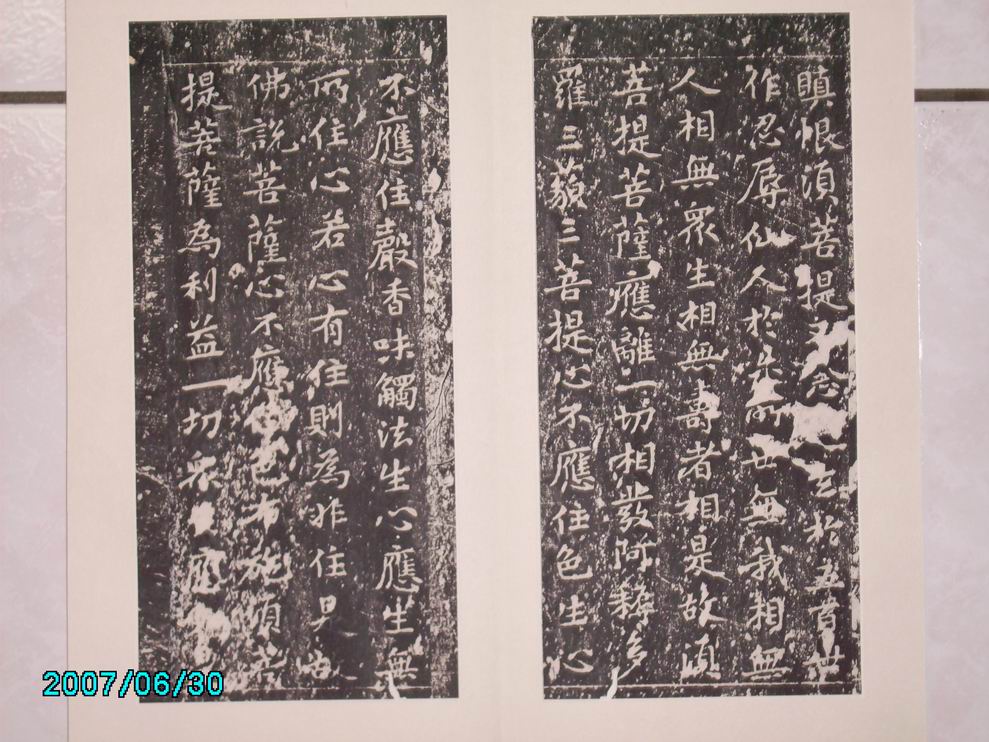 瞋恨須菩提又念過去於五百世
作忍辱仙人於尒所世無我相無
人相無眾生相無壽者相是故須
菩提菩薩應離一切相發阿耨多
羅三藐三菩提心不應住色生心
不應住聲香味觸法生心應生無
所住心若心有住則為非住是故
佛說菩薩心不應住色布施須菩
提菩薩為利益一切眾生應
2007/06/30